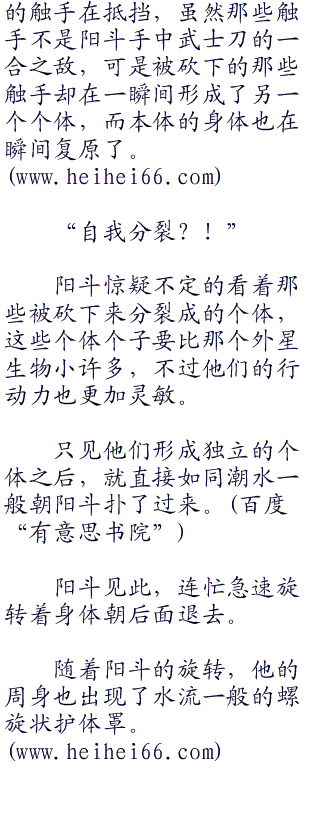 的触手在抵挡，虽然那些触
手不是阳斗手中武士刀的一
合之敌，可是被砍下的那些
触手却在一瞬间形成了另一
个个体，而本体的身体也在
瞬间复原了。
(www.heihei66.com)
“自我分裂？！”
阳斗惊疑不定的看着那
些被砍下来分裂成的个体，
这些个体个子要比那个外星
生物小许多，不过他们的行
动力也更加灵敏。
只见他们形成独立的个
体之后，就直接如同潮水一
般朝阳斗扑了过来。(百度
“有意思书院”)
阳斗见此，连忙急速旋
转着身体朝后面退去。
随着阳斗的旋转，他的
周身也出现了水流一般的螺
旋状护体罩。
(www.heihei66.com)